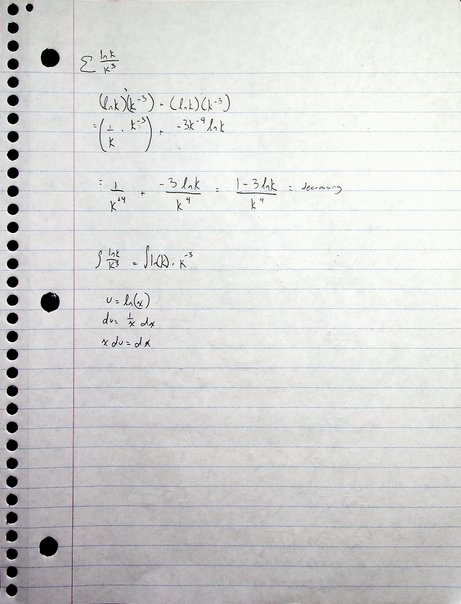 Σ lnk/k³
(lnk)'(k⁻³) + (lnk)(k⁻³)
= (1/k · k⁻³) + -3k⁻⁴ lnk
= 1/k⁴ + -3lnk/k⁴ = 1-3lnk/k⁴ = decreasing
∫ lnk/k³ = ∫ln(k) · k⁻³
u = ln(x)
du = 1/x dx
x du = dx